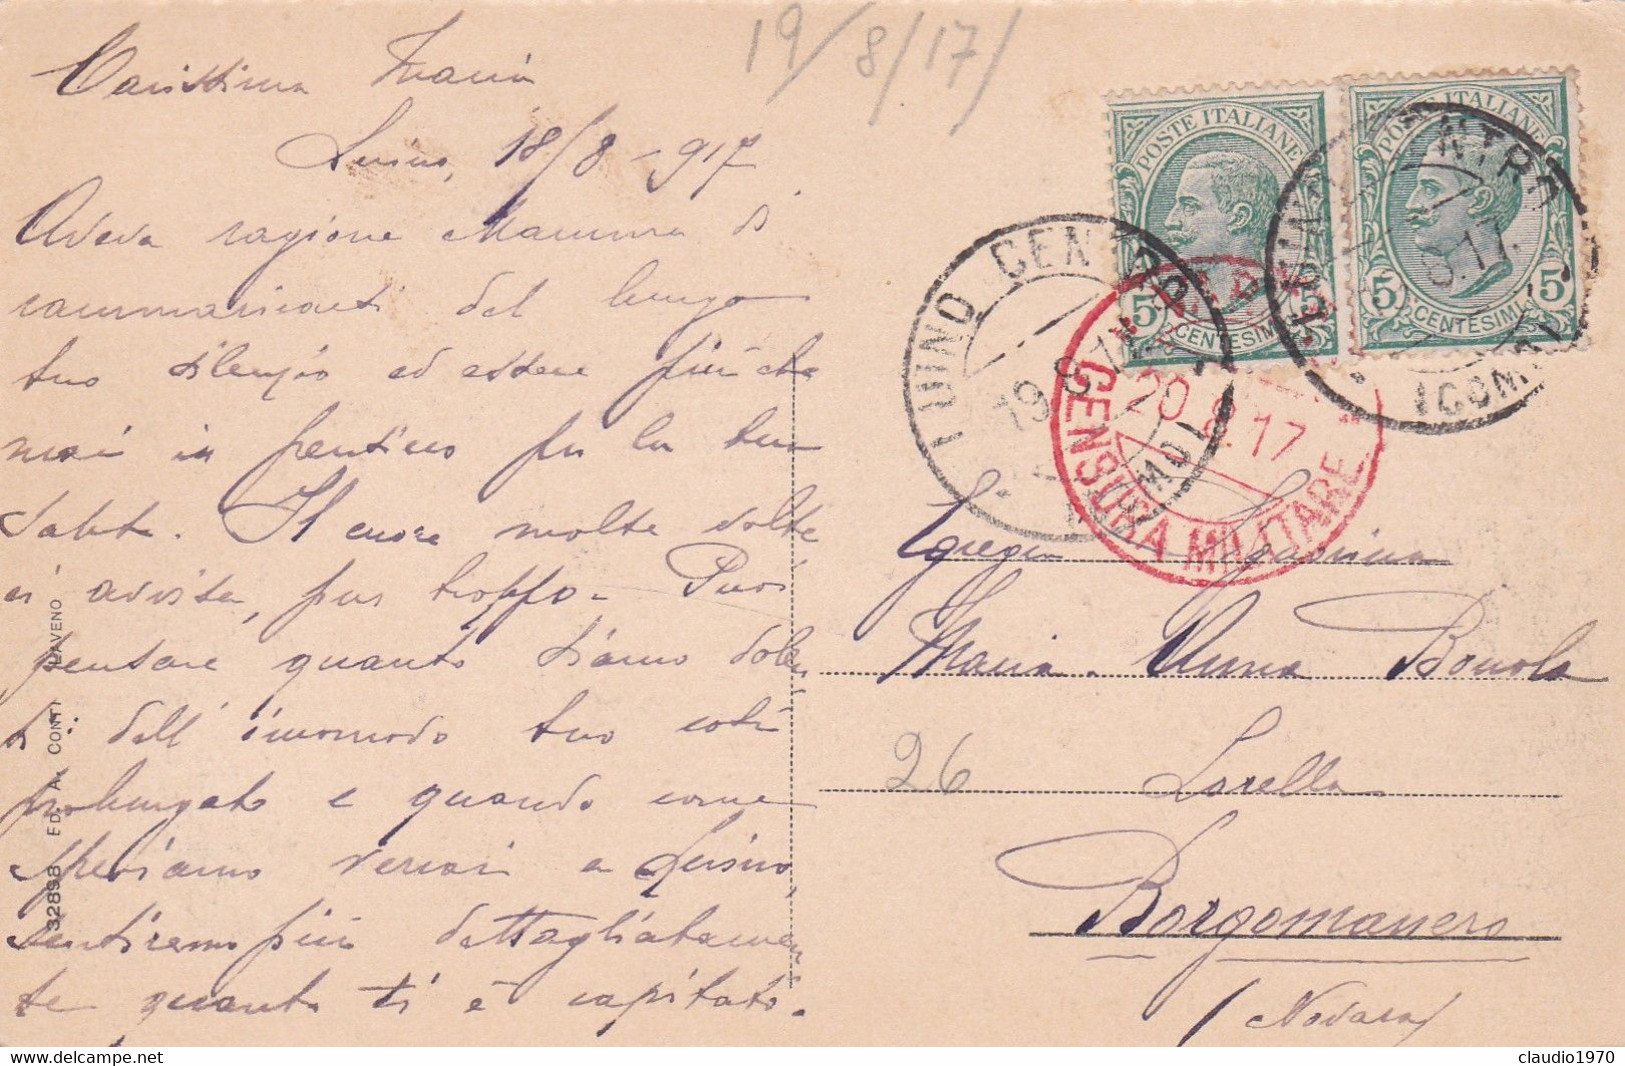 19/8/17/
Carissima Maria
Luino, 18/8-917
Aveva ragione Mamma di
rammaricarsi del lungo
tuo silenzio ed essere più che
mai in pensiero per la tua
salute. Il cuore molte volte
ci avvisa, pur troppo. Puoi
pensare quanto siamo dolen
ti dell'incomodo tuo così
prolungato e quando come
speriamo verrai a Luino,
sentiremo più dettagliatamen
te quanto ti è capitato.
32898 ED. A. CONTI LAVENO
POSTE ITALIANE
5 5
CENTESIMI
POSTE ITALIANE
5 5
CENTESIMI
LUINO CENTRO
(COMO)
19 8 17
LUINO CENTRO
(COMO)
8.17
20.8.17
CENSURA MILITARE
Egregia Signorina
Maria Anna Bonola
26
Borgomanero
(Novara)
claudio1970